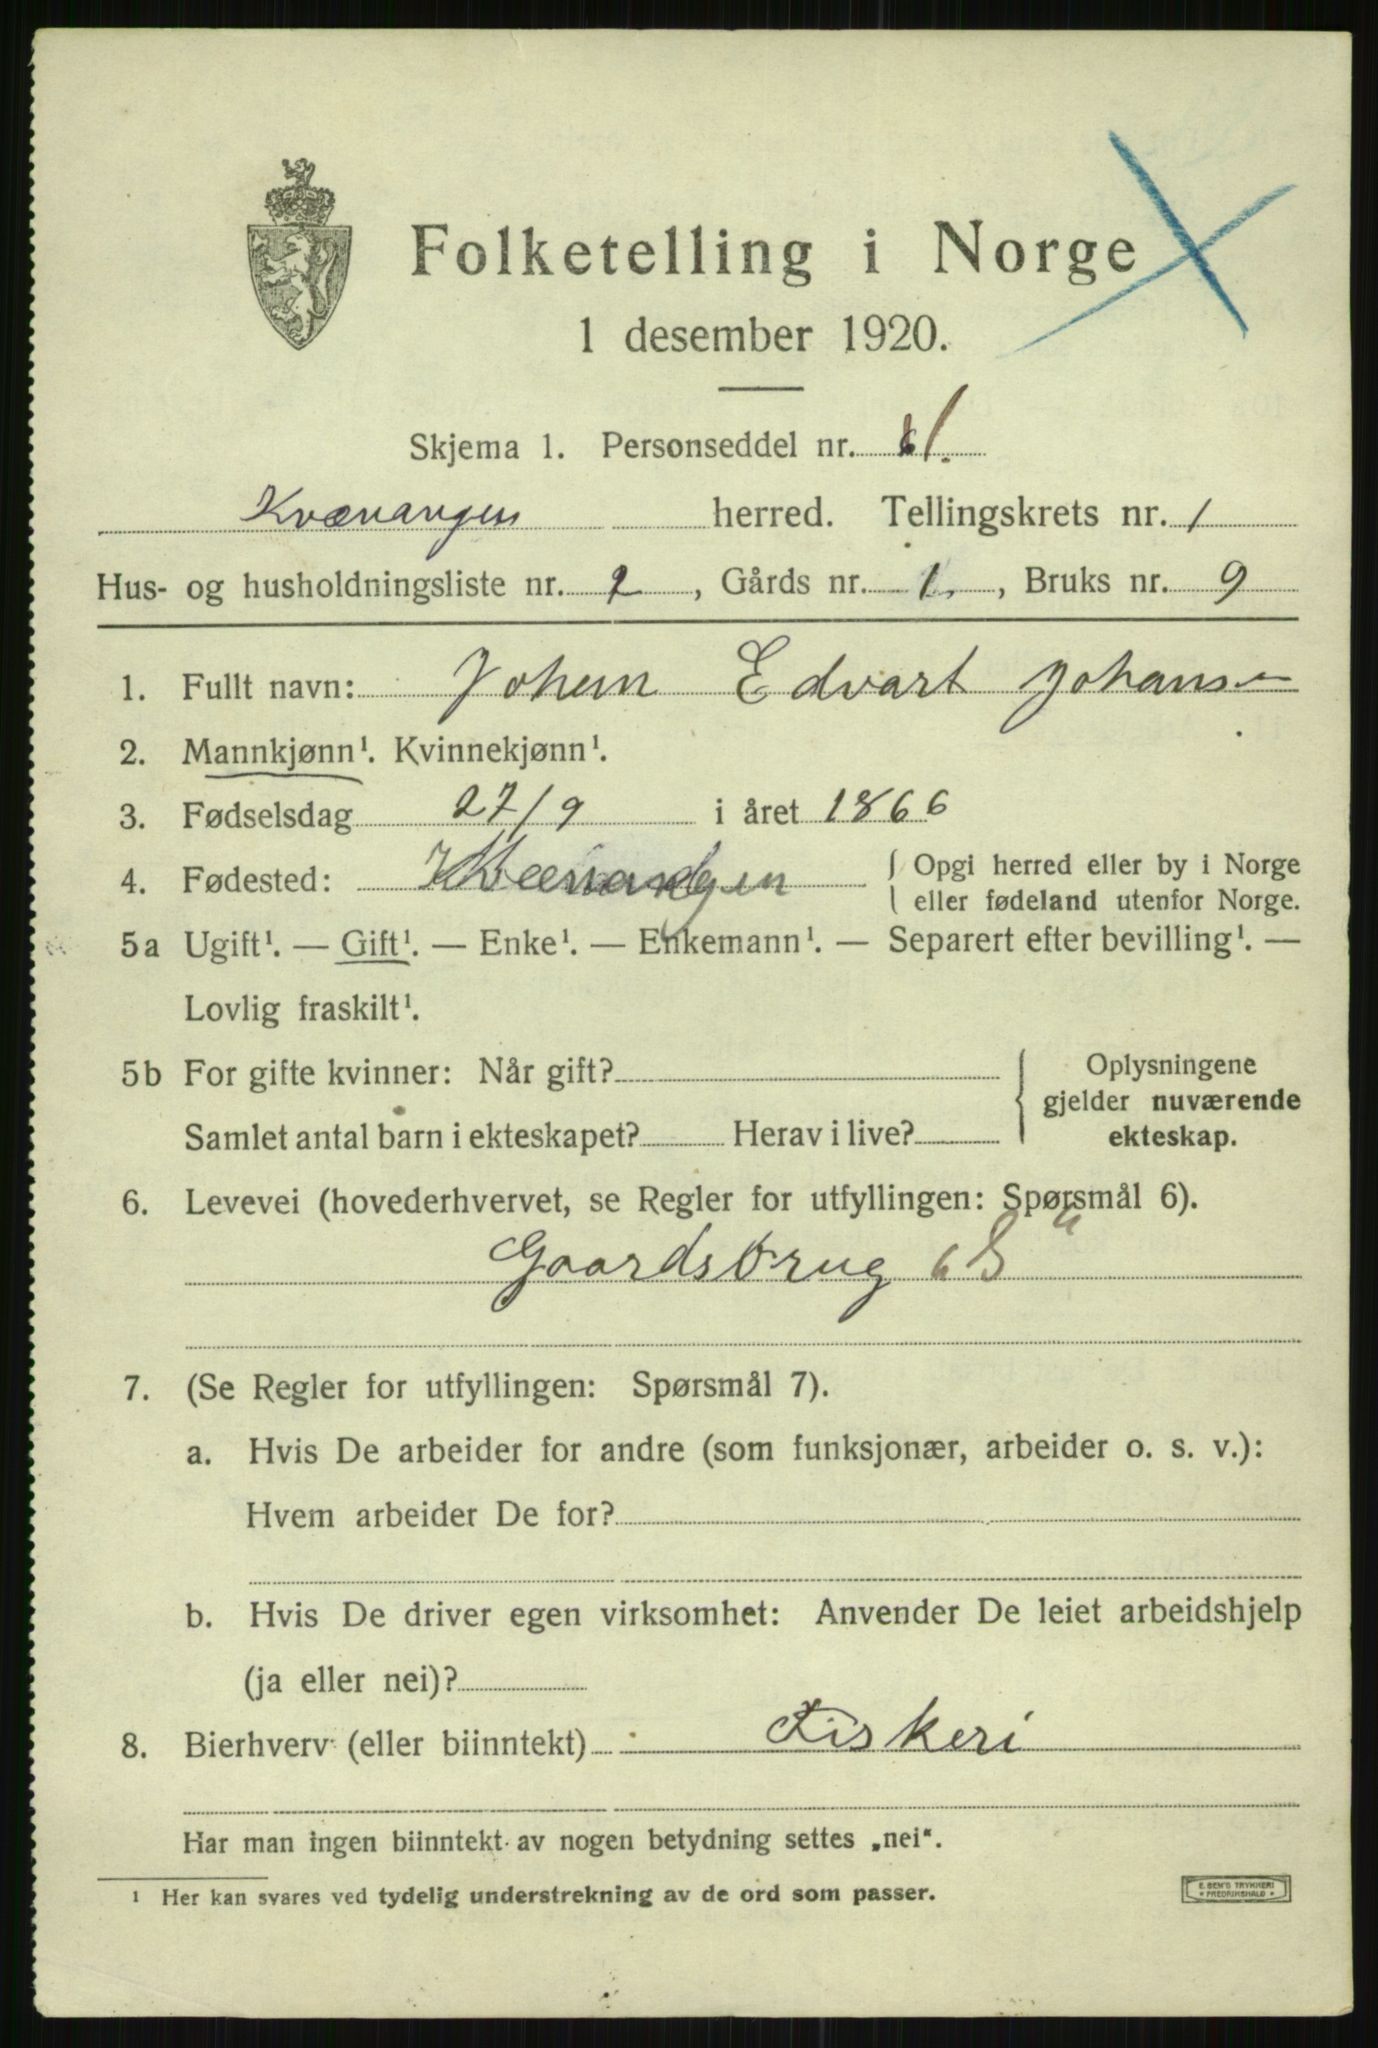 Folketelling i Norge
1 desember 1920.
Skjema 1. Personseddel nr. 1.
Kvænangen herred. Tellingskrets nr. 1
Hus- og husholdningsliste nr. 2, Gårds nr. 1., Bruks nr. 9
1. Fullt navn: Johan Edvart Johansen
2. Mannkjønn¹. Kvinnekjønn¹.
3. Fødselsdag 27/9 i året 1866
4. Fødested: Kvænangen { Opgi herred eller by i Norge
eller fødeland utenfor Norge.
5a Ugift¹. — Gift¹. — Enke¹. — Enkemann¹. — Separert efter bevilling¹. —
Lovlig fraskilt¹.
5b For gifte kvinner: Når gift?
Samlet antal barn i ekteskapet? Herav i live?
Oplysningene
gjelder nuværende
ekteskap.
6. Levevei (hovederhvervet, se Regler for utfyllingen: Spørsmål 6).
Gaardsbrug "S"
7. (Se Regler for utfyllingen: Spørsmål 7).
a. Hvis De arbeider for andre (som funksjonær, arbeider o. s. v.):
Hvem arbeider De for?
b. Hvis De driver egen virksomhet: Anvender De leiet arbeidshjelp
(ja eller nei)?
8. Bierhverv (eller biinntekt) Fiskeri
Har man ingen biinntekt av nogen betydning settes „nei“.
¹ Her kan svares ved tydelig understrekning av de ord som passer.
E. SEM'S TRYKKERI
FREDRIKSHALD